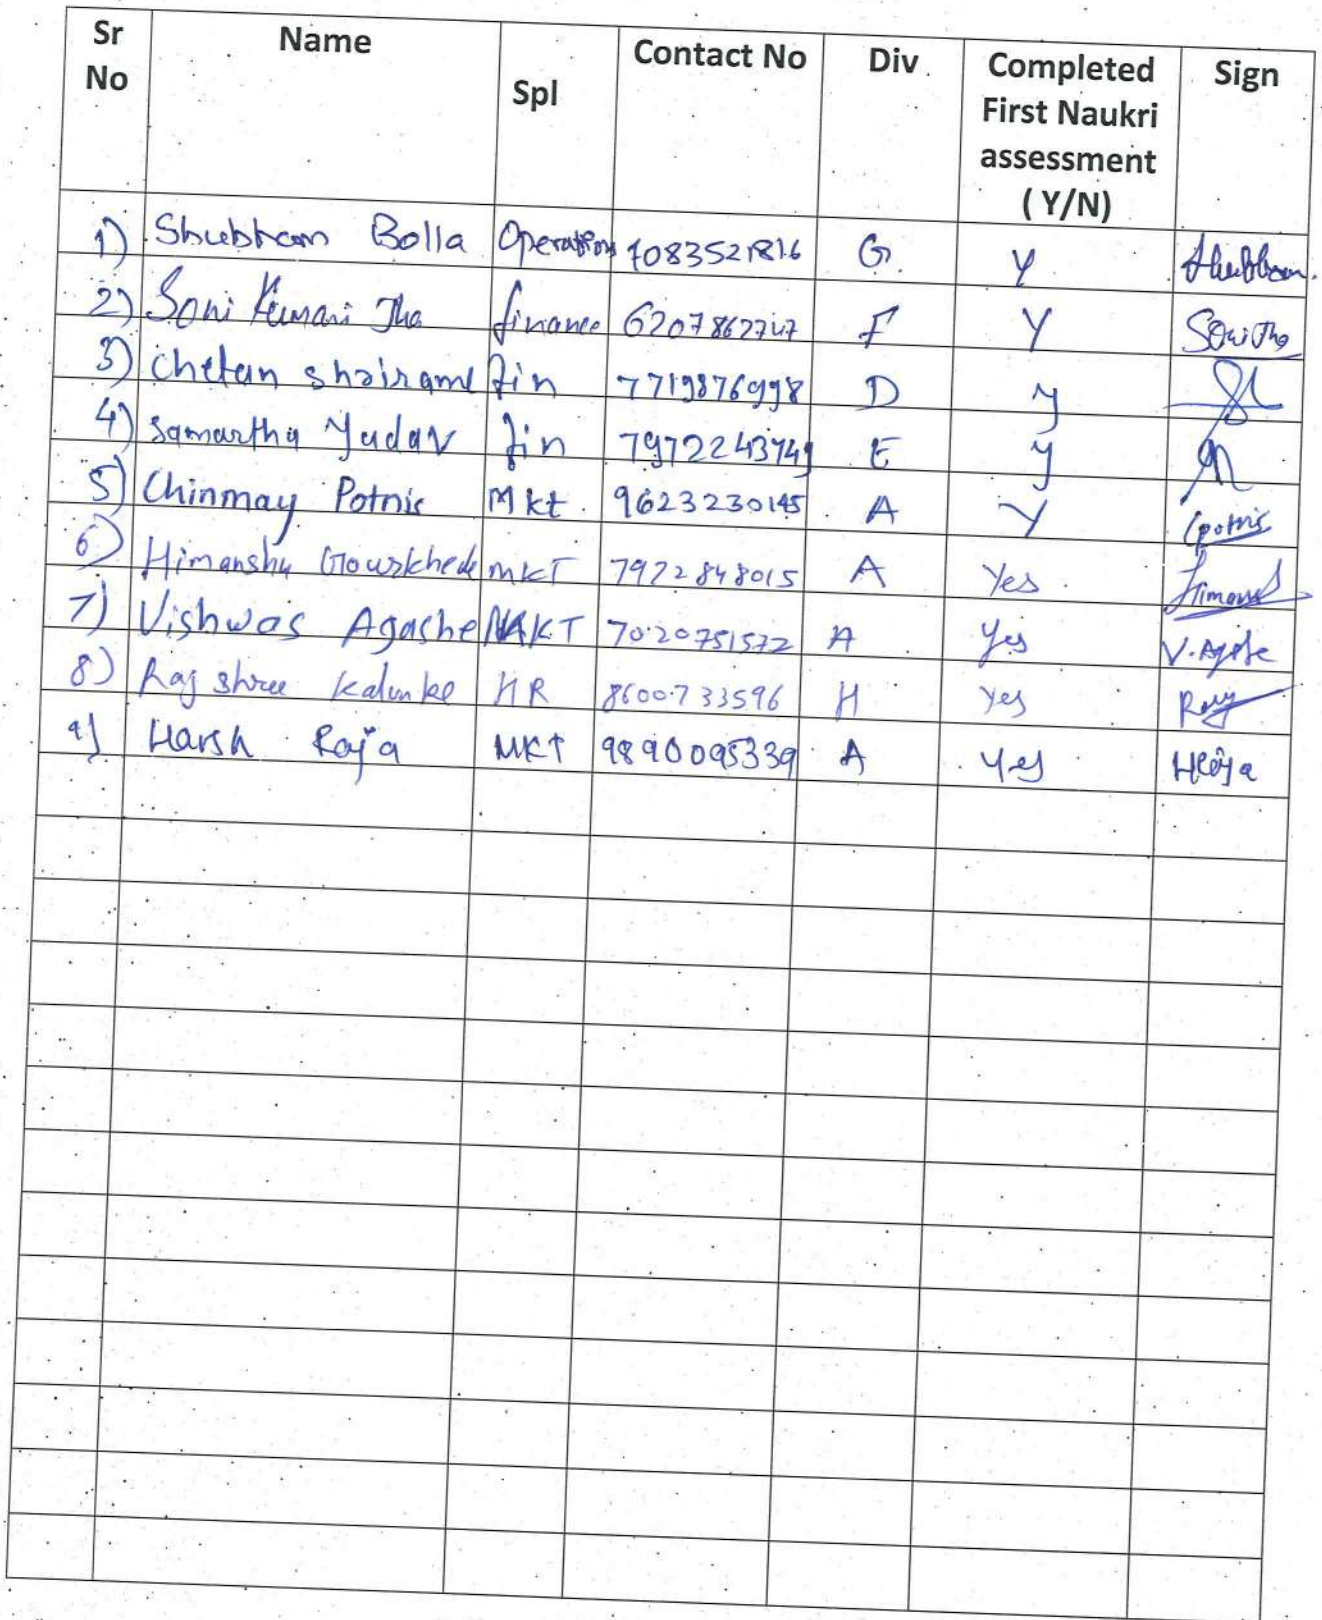 Sr No Name Spl Contact No Div Completed First Naukri assessment ( Y/N) Sign
1) Shubham Bolla Operations 7083521816 G Y Shubham.
2) Soni Kumari Jha finance 6207862747 F Y Soni Jha
3) Chetan shairame fin 7719876998 D y
4) Samartha Yadav fin 7972243749 E y
5) Chinmay Potnis Mkt 9623230145 A Y Cpotnis
6) Himanshu Gourkhede MKT 7972848015 A Yes
7) Vishwas Agashe MKT 7020751572 A Yes V.Agashe
8) Raj shree Kalunke HR 8600733596 H Yes Raj
9) Harsh Raja MKT 9890095339 A Yes HRaja